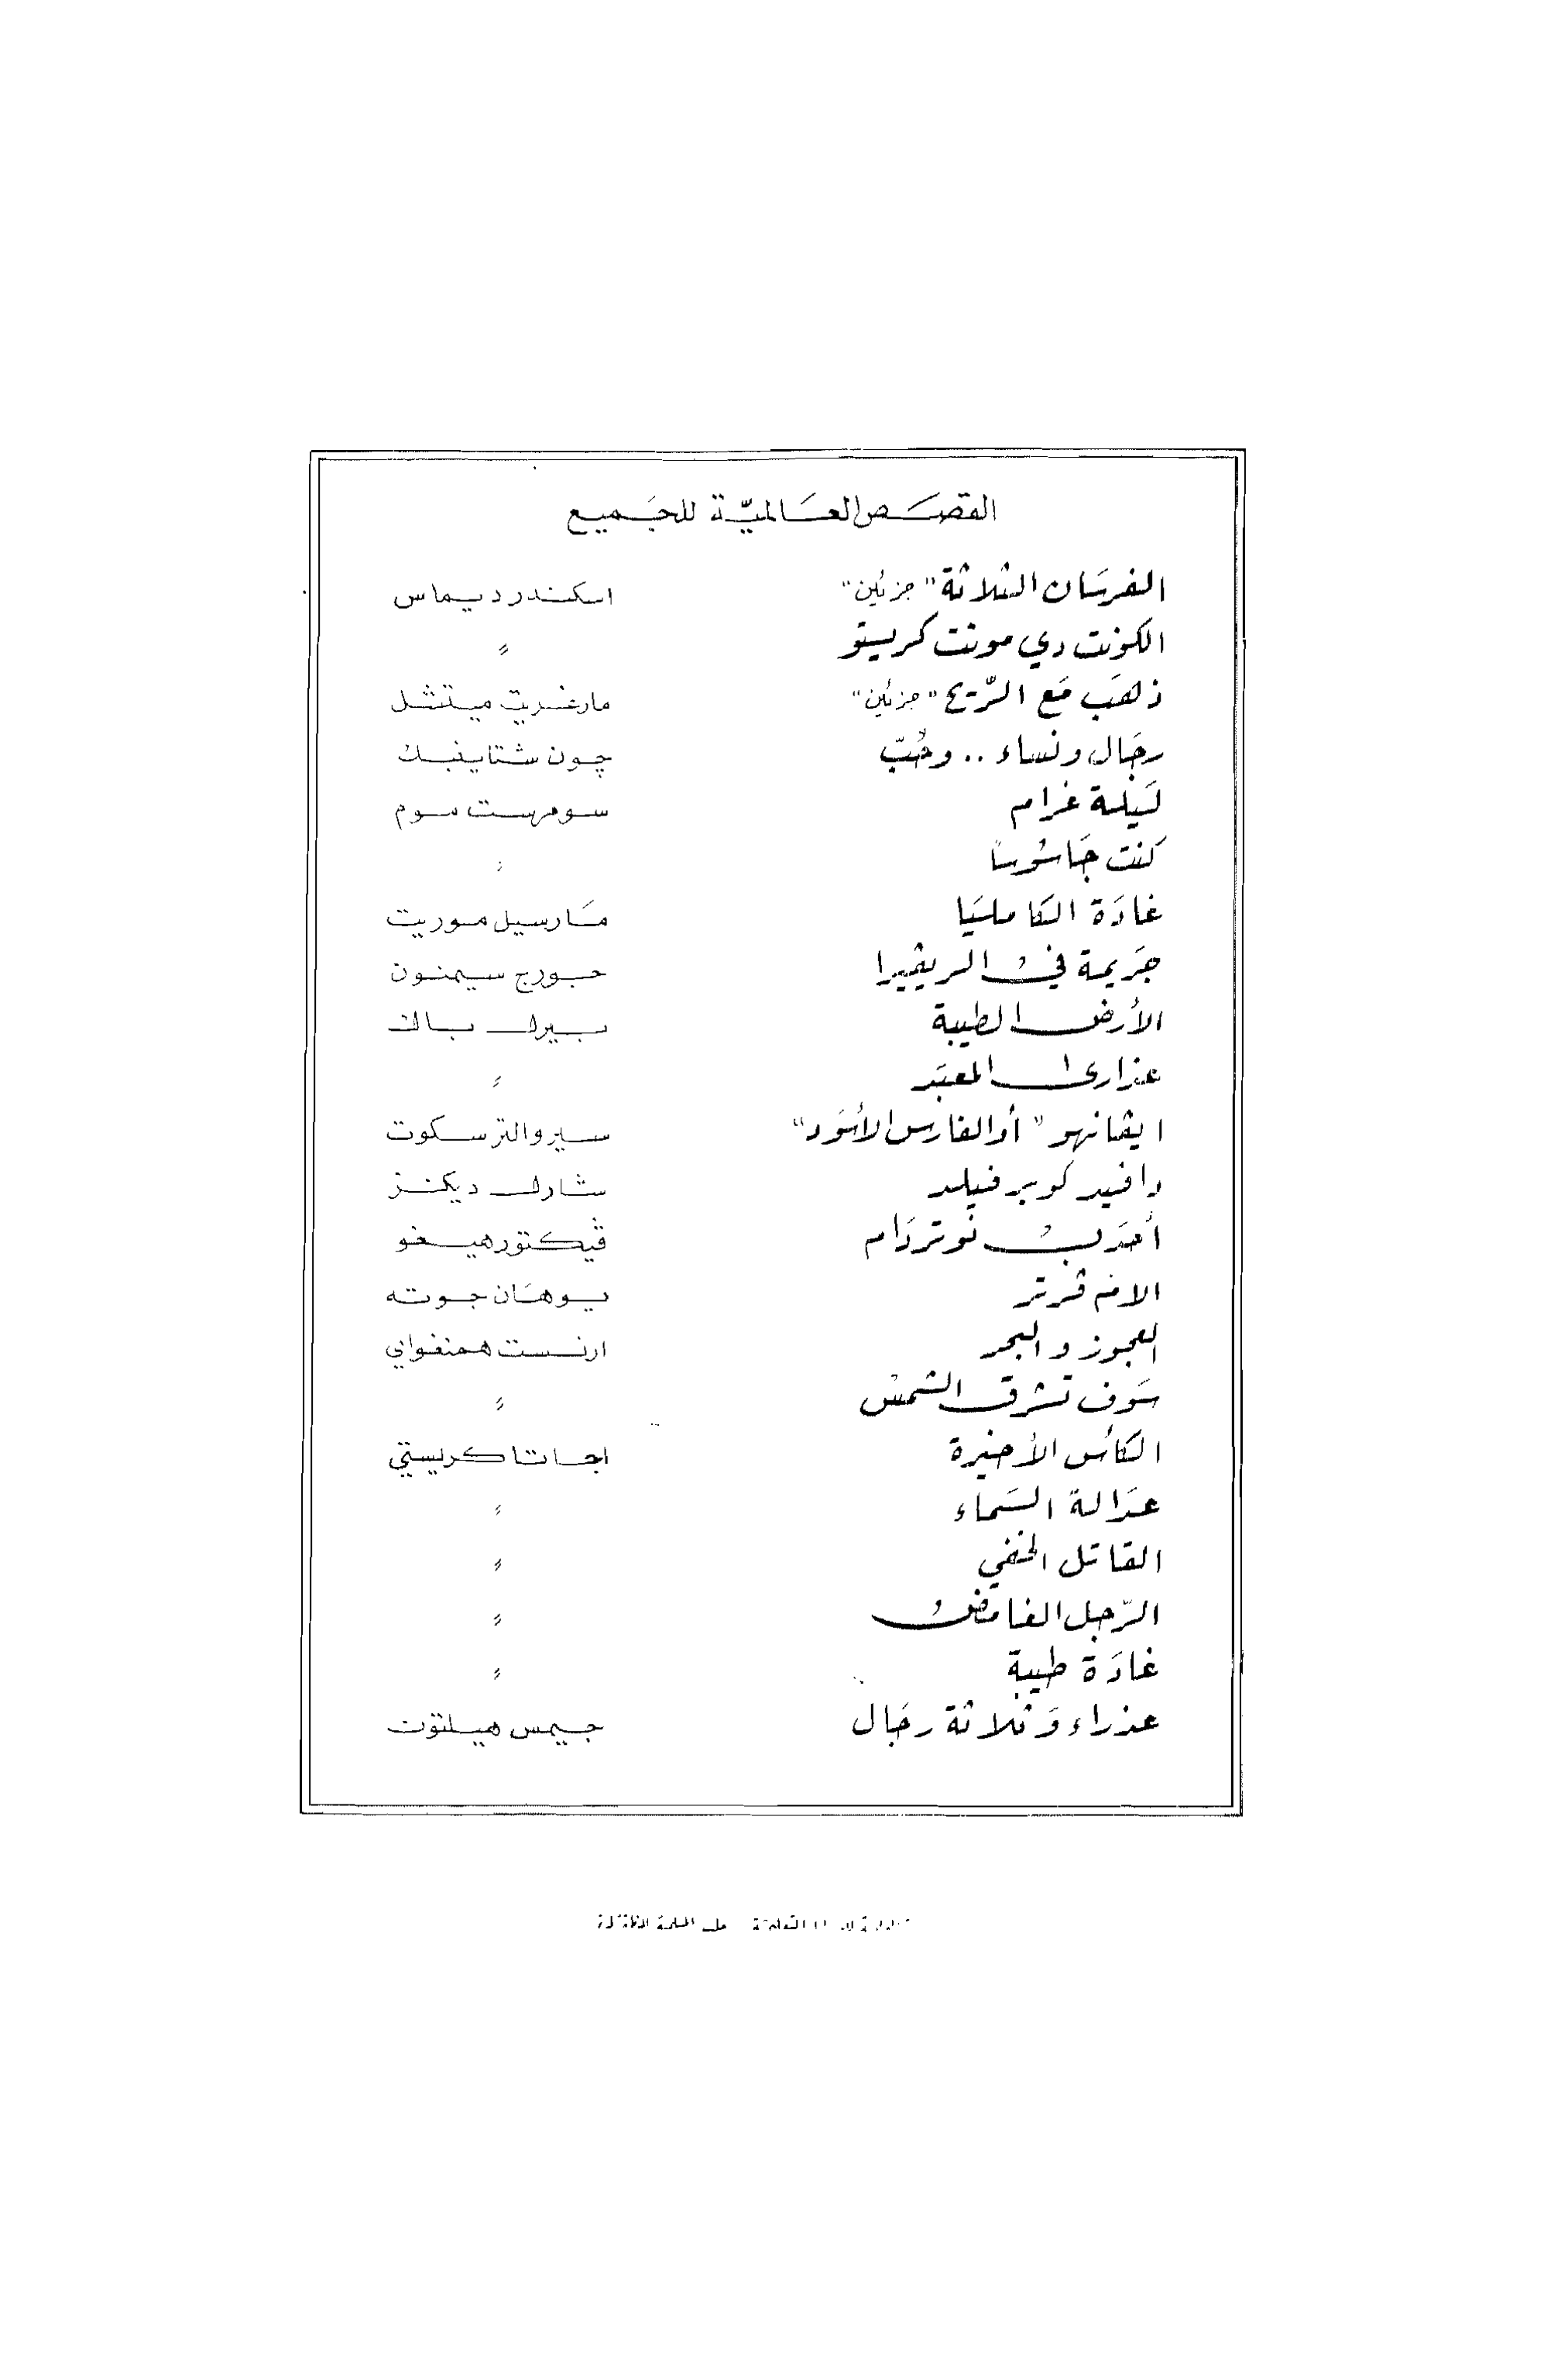 القصَص العَالميّة للجَميع
الفرسَان الثلاثة "جزئين" اسكندر ديماس
الكونت دي مونت كريستو "
ذهبَ مَع الرّيح "جزئين" مارغريت ميتشل
رجَال ونساء .. وحُبّ چون شتاينبك
لَيلة غرام سومرست موم
كنت جَاسُوسًا "
غادَة الكامليَا مَارسيل موريت
جَريمة في الريڤييرا جورج سيمنون
الأرض الطيبة بيرل باك
عذارى المعبَد "
ايڤانهو "أو الفارس الأسوَد" سير والتر سكوت
دافيد كوبر فيلد شارلز ديكنز
أحدَب نوتردَام ڤيكتور هيغو
آلام ڤرتر يوهَان جوته
العجوز والبحر ارنست همنغواي
سَوف تشرق الشمس "
الكأس الأخيرة اجاتا كريستي
عدَالة السَماء "
القاتل الخفي "
الرّجل الغامض "
غادَة طيبة "
عذراء وَثلاثة رجَال جيمس هيلتون